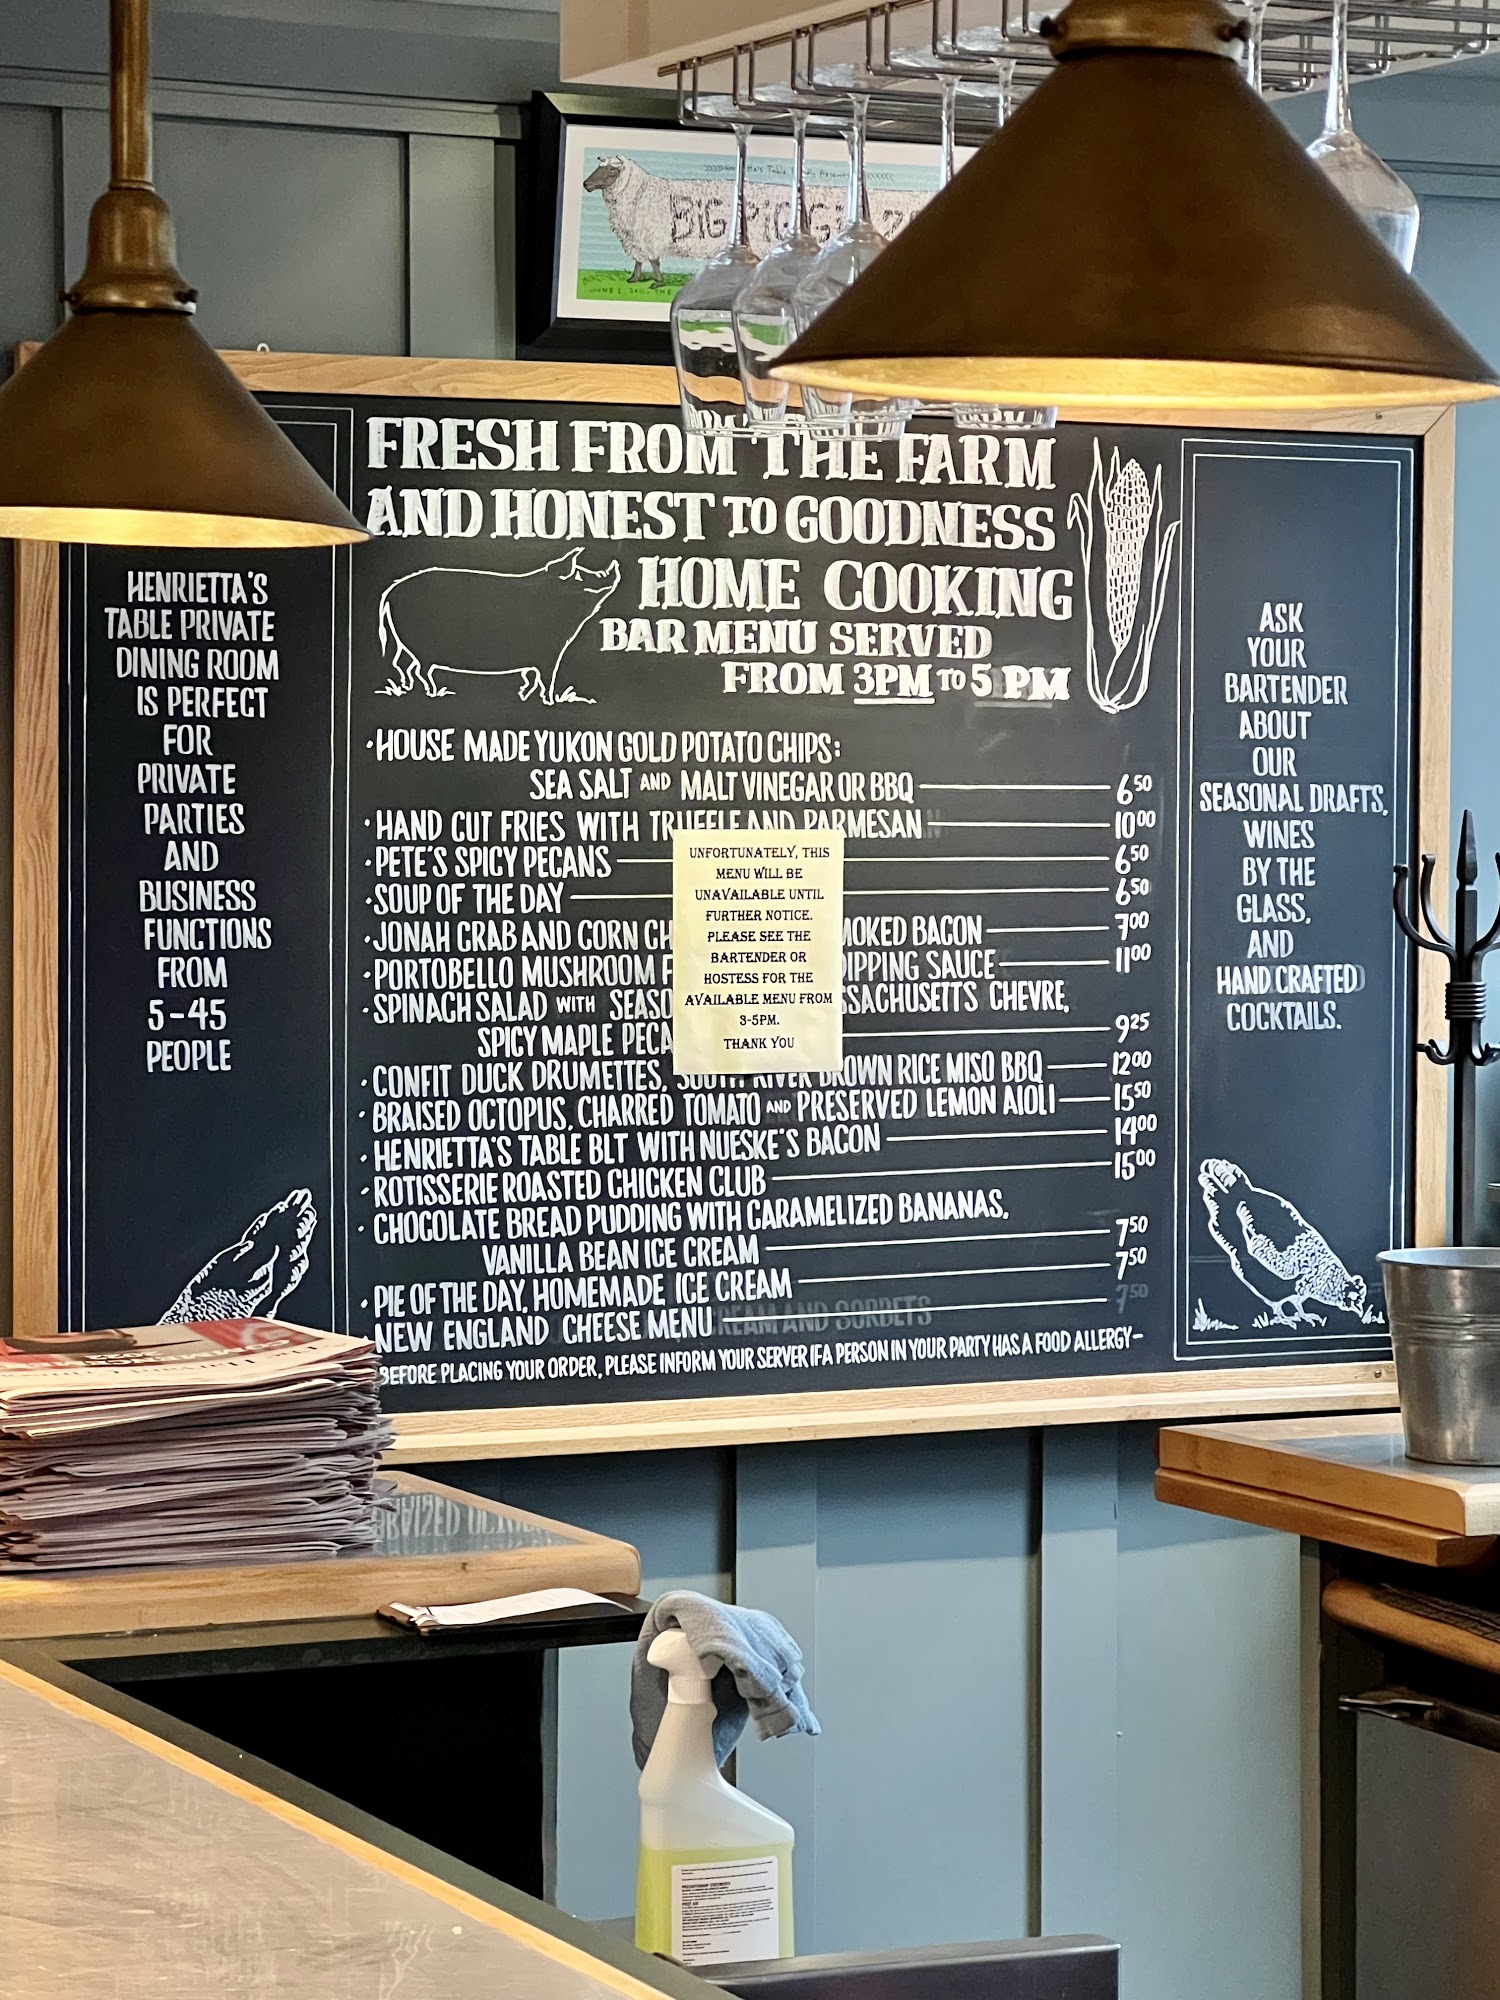 BIG PIG GIG
HENRIETTA'S
TABLE PRIVATE
DINING ROOM
IS PERFECT
FOR
PRIVATE
PARTIES
AND
BUSINESS
FUNCTIONS
FROM
5-45
PEOPLE
FRESH FROM THE FARM
AND HONEST TO GOODNESS
HOME COOKING
BAR MENU SERVED
FROM 3PM TO 5 PM
·HOUSE MADE YUKON GOLD POTATO CHIPS:
SEA SALT AND MALT VINEGAR OR BBQ 6⁵⁰
·HAND CUT FRIES WITH TRUFFLE AND PARMESAN 10⁰⁰
·PETE'S SPICY PECANS 6⁵⁰
·SOUP OF THE DAY 6⁵⁰
·JONAH CRAB AND CORN SMOKED BACON 7⁰⁰
·PORTOBELLO MUSHROOM DIPPING SAUCE 11⁰⁰
·SPINACH SALAD WITH MASSACHUSETTS CHEVRE,
SPICY MAPLE 9²⁵
·CONFIT DUCK DRUMETTES, SOUTH RIVER BROWN RICE MISO BBQ 12⁰⁰
·BRAISED OCTOPUS, CHARRED TOMATO AND PRESERVED LEMON AIOLI 15⁵⁰
·HENRIETTA'S TABLE BLT WITH NUESKE'S BACON 14⁰⁰
·ROTISSERIE ROASTED CHICKEN CLUB 15⁰⁰
·CHOCOLATE BREAD PUDDING WITH CARAMELIZED BANANAS,
VANILLA BEAN ICE CREAM 7⁵⁰
·PIE OF THE DAY, HOMEMADE ICE CREAM 7⁵⁰
·NEW ENGLAND CHEESE MENU
BEFORE PLACING YOUR ORDER, PLEASE INFORM YOUR SERVER IF A PERSON IN YOUR PARTY HAS A FOOD ALLERGY-
UNFORTUNATELY, THIS
MENU WILL BE
UNAVAILABLE UNTIL
FURTHER NOTICE.
PLEASE SEE THE
BARTENDER OR
HOSTESS FOR THE
AVAILABLE MENU FROM
3-5PM.
THANK YOU
ASK
YOUR
BARTENDER
ABOUT
OUR
SEASONAL DRAFTS,
WINES
BY THE
GLASS,
AND
HAND CRAFTED
COCKTAILS.